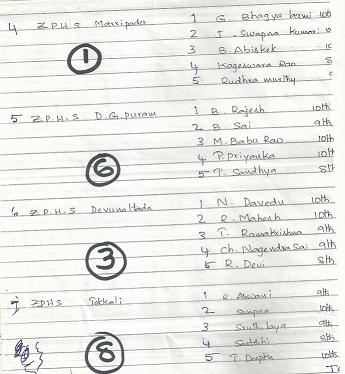 4 Z.P.H.S Marripadu 1 G. Bhagya laxmi 10th
2 T. Swapna Kumari 10
3 B. Abishek 10
① 4 Kageswara Rao 8
5 Rudhra murthy
5 Z.P.H.S D.G.puram 1 B. Rajesh 10th
2 B. Sai 9th
3 M. Babu Rao 10th
⑥ 4 P. Priyanka 10th
5 T. Sandhya 8th
6 Z.P.H.S Devunaltada 1 N. Davedu 10th
2 R. Mahesh 10th
3 T. Ramakrishna 9th
③ 4 Ch. Nagendra Sai 9th
5 R. Devi 8th
7 ZPHS Tekkali 1 R. Aswani 9th
2 Swapna 10th
3 Sruthi laya 9th
⑧ 4 8th
5 T. Deepka 10th